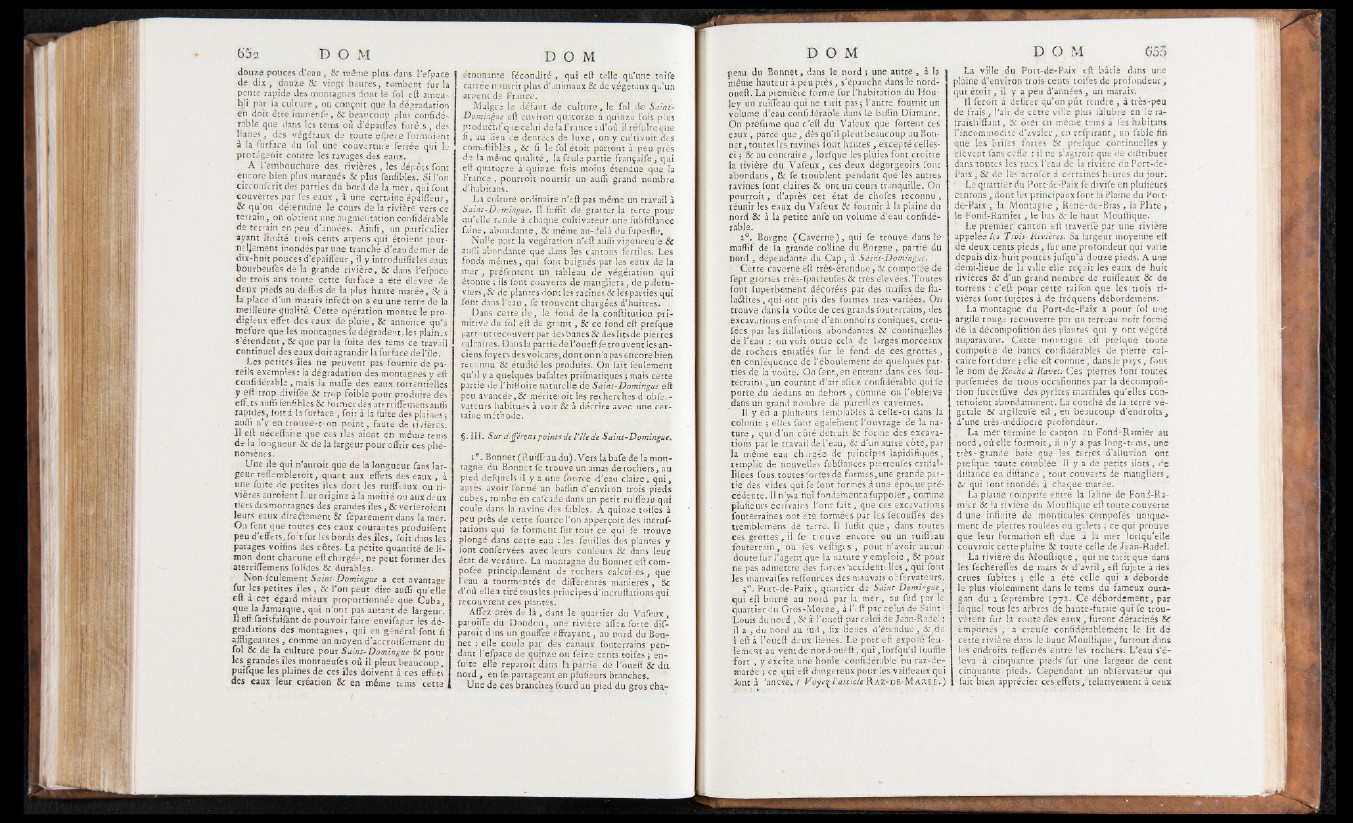 652 D O M
douze pouces d'eau, & même plus dans l'espace
de dix, douze & vingt heures, tombent sur la
pente rapide des montagnes dont le sol est ameu-
bli par la culture, on conçoit que la dégradation
en doit être immense, & beaucoup plus considé-
rable que dans les tems où d'épaisses forêts, des
lianes, des végétaux de toute espèce formoient
à la surface du sol une couverture serrée qui le
protégeoit contre les ravages des eaux.
A l'embouchure des rivières, les dépôts sont
encore bien plus marqués & plus sensibles. Si l'on
circonscrit des parties du bord de la mer, qui sont
couvertes par ses eaux, à une certaine épaisseur,
& qu'on détermine le cours de la rivière vers ce
terrain, on obtient une augmentation considérable
de terrain en peu d'années. Ainsi, un particulier
ayant limité trois cents arpens qui étoient jour-
nellement inondés par une tranche d'eau de mer de
dix-huit pouces d'épaisseur, il y introduisit les eaux
bourbeuses de la grande rivière, & dans l'espace
de trois ans toute cette surface a été élevée de
deux pieds au dessus de la plus haute marée, & à
la place d'un marais infect on a eu une terre de la
meilleure qualité. Cette opération montre le pro-
digieux effet des eaux de pluie, & annonce qu'à
mesure que les montagnes se dégradent, les plaines
s'étendent, & que par la suite des tems ce travail
continuel des eaux doit agrandir la surface de l'île.
Les petites îles ne peuvent pas fournir de pa-
reils exemples: la dégradation des montagnes y est
considérable, mais la masse des eaux torrentielles
y est trop divisée & trop foible pour produire des
effets aussi sensibles & former des atterrissemens aussi
rapides, soit à la surface, soit à la suite des plaines;
aussi n'y en trouve-t-on point, faute de rivières.
Il est nécessaire que ces îles aient en même tems
de la longueur & de la largeur pour offrir ces phé-
nomènes.
Une île qui n'auroit que de la longueur sans lar-
geur ressembleroit, quant aux effets des eaux, à
une suite de petites îles dont les ruisseaux ou ri-
vières auroient leur origine à la moitié ou aux deux
tiers des montagnes des grandes îles, & verseroient
leurs eaux directement & séparément dans la mer.
On sent que toutes ces eaux courantes produisent
peu d'effets, soit sur les bords des îles, soit dans les
parages voisins des côtes. La petite quantité de li-
mon dont chacune est chargée, ne peut former des
aterrissemens solides & durables.
Non-seulement Saint-Domingue a cet avantage
sur les petites îles, & l'on peut dire aussi qu'elle
est à cet égard mieux proportionnée que Cuba,
que la Jamaïque, qui n'ont pas autant de largeur.
Il est satisfaisant de pouvoir faire envisager les dé-
gradations des montagnes, qui en général sont si
affligeantes, comme un moyen d'accroissement du
sol & de la culture pour Saint-Domingue & pour
les grandes îles montueuses où il pleut beaucoup,
puisque les plaines de ces îles doivent à ces effets
des eaux leur création & en même tems cette
D O M
étonnante fécondité, qui est telle qu'une toise
carrée nourrit plus d'animaux & de végétaux qu'un
arpent de France.
Malgré le défaut de culture, le sol de Saint-
Domingue est environ quatorze à quinze fois plus
productif que celui de la France: d'où il résulte que
si, au lieu de denrées de luxe, on y cultivoit des
comestibles, & si le sol étoit partout à peu près
de la même qualité, la seule partie française, qui
est quatorze à quinze fois moins étendue que la
France, pourroit nourrir un aussi grand nombre
d'habitans.
La culture ordinaire n'est pas même un travail à
Saint-Domingue. Il suffit de gratter la terre pour
qu'elle rende à chaque cultivateur une subsistance
saine, abondante, & même au-delà du superflu.
Nulle part la végétation n'est aussi vigoureuse &
aussi abondante que dans les cantons fertiles. Les
fonds mêmes, qui sont baignés par les eaux de la
mer, présentent un tableau de végétation qui
étonne; ils sont couverts de mangliers, de palétu-
viers, & de plantes dont les racines & les parties qui
sont dans l'eau, se trouvent chargées d'huîtres.
Dans cette île, le fond de la constitution pri-
mitive du sol est de granit, & ce fond est presque
partout recouvert par les bancs & des lits de pierres
calcaires. Dans la partie de l'ouest se trouvent les an-
ciens foyers des volcans, dont on n'a pas encore bien
reconnu & étudié les produits. On sait seulement
qu'il y a quelques basaltes prismatiques; mais cette
partie de l'histoire naturelle de Saint-Domingue est
peu avancée, & mériteroit les recherches d'obser-
vateurs habitués à voir & à décrire avec une cer-
taine méthode.
§. III. Sur différens points de l'île de Saint-Domingue.
1°. Bonnet (Ruisseau du). Vers la base de la mon-
tagne du Bonnet se trouve un amas de rochers, au
pied desquels il y a une source d'eau claire, qui,
après avoir formé un bassin d'environ trois pieds
cubes, tombe en cascade dans un petit ruisseau qui
coule dans la ravine du sables. A quinze toises à
peu près de cette source l'on apperçoit des incrus-
tations qui se forment sur tout ce qui se trouve
plongé dans cette eau: les feuilles des plantes y
sont conservées avec leurs couleurs & dans leur
état de verdure. La montagne du Bonnet est com-
posée principalement de rochers calcaires, que
l'eau a tourmentés de différentes manières, &
d'où elle a tiré tous les principes d'incrustations qui
recouvrent ces plantes.
Assez près de là, dans le quartier du Vaseux,
paroisse du Dondon, une rivière assez forte dis-
paroît dans un gouffre effrayant, au nord du Bon-
net: elle coule par des canaux souterrains pen-
dant l'espace de quinze ou seize cents toises; en-
suite elle reparoît dans la partie de l'ouest & du
nord, en se partageant en plusieurs branches.
Une de ces branches sourd au pied du gros cha-
D O M
peau du Bonnet, dans le nord; une autre, à la
même hauteur à peu près, s'épanche dans le nord-
ouest. La première forme sur l'habitation du Hou-
ley un ruisseau qui ne tarit pas; l'autre fournit un
volume d'eau considérable dans le bassin Diamant.
On présume que c'est du Vaseux que sortent ces
eaux, parce que, dès qu'il pleut beaucoup au Bon-
net, toutes les ravines sont hautes, excepté celles-
ci; & au contraire, lorsque les pluies font croître
la rivière du Vaseux, ces deux dégorgeoirs sont
abondans, & se troublent pendant que les autres
ravines sont claires & ont un cours tranquille. On
pourroit, d'après cet état de choses reconnu,
réunir les eaux du Vaseux & fournir à la plaine du
nord & à la petite anse un volume d'eau considé-
rable.
2°. Borgne (Caverne), qui se trouve dans le
massif de la grande colline du Borgne, partie du
nord, dépendante du Cap, à Saint-Domingue.
Cette caverne est très-étendue, & composée de
sept grottes très-spacieuses & très-élevées. Toutes
sont superbement décorées par des masses de sta-
lactites, qui ont pris des formes très-variées. On
trouve dans la voûte de ces grands souterrains, des
excavations en forme d'entonnoirs coniques, creu-
sées par les stillations abondantes & continuelles
de l'eau: on voit outre cela de larges morceaux
de rochers entassés sur le fond de ces grottes,
en conséquence de l'éboulement de quelques par-
ties de la voûte. On sent, en entrant dans ces sou-
terrains, un courant d'air assez considérable qui se
porte du dedans au dehors, comme on l'observe
dans un grand nombre de pareilles cavernes.
Il y en a plusieurs semblables à celle-ci dans la
colonie; elles sont également l'ouvrage de la na-
ture, qui d'un côté détruit & forme des excava-
tions par le travail de l'eau, & d'un autre côté, par
la même eau chargée de principes lapidifiques,
remplit de nouvelles substances pierreuses cristal-
lisées sous toutes sortes de formes, une grande par-
tie des vides qui se sont formés à une époque pré-
cédente. Il n'y a nul fondement à supposer, comme
plusieurs écrivains l'ont fait, que ces excavations
souterraines ont été formées par les secousses des
tremblemens de terre. Il suffit que, dans toutes
ces grottes, il se trouve encore ou un ruisseau
souterrain, ou ses vestiges, pour n'avoir aucun
doute sur l'agent que la nature y emploie, & pour
ne pas admettre des forces accidentelles, qui sont
les mauvaises ressources des mauvais observateurs.
3°. Port-de-Paix, quartier de Saint-Domingue,
qui est borné au nord par la mer, au sud par le
quartier du Gros-Morne, à l'est par celui de Saint-
Louis du nord, & à l'ouest par celui de Jean-Radel:
il a, du nord au sud, six lieues d'étendue, & de
l'est à l'ouest deux lieues. Le port est exposé seu-
lement au vent de nord-ouest, qui, lorsqu'il souffle
fort, y excite une houle considérable ou raz-de-
marée; ce qui est dangereux pour les vaisseaux qui
sont à l'ancre. (Voyez l'article RAZ-DE-MARÉE.)
D O M 653
La ville du Port-de-Paix est bâtie dans une
plaine d'environ trois cents toises de profondeur,
qui étoit, il y a peu d'années, un marais.
Il seroit à desirer qu'on pût rendre, à très-peu
de frais, l'air de cette ville plus salubre en le ra-
fraîchissant, & ôter en même tems à ses habitans
l'incommodité d'avaler, en respirant, un sable fin
que les brises fortes & presque continuelles y
élèvent sans cesse: il ne s'agiroit que de distribuer
dans toutes les rues l'eau de la rivière du Port-de-
Paix, & de les arroser à certaines heures du jour.
Le quartier du Port-de-Paix se divise en plusieurs
cantons, dont les principaux sont la Plaine du Port-
de-Paix, la Montagne, René-de-Bras, la Plate,
le Fond-Ramier, le bas & le haut Moustique.
Le premier canton est traversé par une rivière
appelée les Trois Rivières. Sa largeur moyenne est
de deux cents pieds, sur une profondeur qui varie
depuis dix-huit pouces jusqu'à douze pieds. A une
demi-lieue de la ville elle reçoit les eaux de huit
rivières & d'un grand nombre de ruisseaux & de
torrens: c'est pour cette raison que les trois ri-
vières sont sujètes à de fréquens débordemens.
La montagne du Port-de-Paix a pour sol une
argile rouge recouverte par un terreau noir formé
de la décomposition des plantes qui y ont végété
auparavant. Cette montagne est presque toute
composée de bancs considérables de pierre cal-
caire fort dure; elle est connue, dans le pays, sous
le nom de Roche à Ravet. Ces pierres sont toutes
parsemées de trous occasionnés par la décomposi-
tion successive des pyrites martiales qu'elles con-
tenoient abondamment. La couche de la terre vé-
gétale & argileuse est, en beaucoup d'endroits,
d'une très-médiocre profondeur.
La mer termine le canton au Fond-Ramier au
nord, où elle formoit, il n'y a pas long-tems, une
très-grande baie que les terres d'alluvion ont
presque toute comblée. Il y a de petits îlots, de
distance en distance, tout couverts de mangliers,
& qui sont inondés à chaque marée.
La plaine comprise entre la saline de Fond-Ra-
mier & la rivière du Moustique est toute couverte
d'une infinité de monticules composés unique-
ment de pierres roulées ou galets; ce qui prouve
que leur formation est due à la mer lorsqu'elle
couvroit cette plaine & toute celle de Jean-Radel.
La rivière du Moustique, qui ne tarit que dans
les sécheresses de mars & d'avril, est sujète à des
crues subites; elle a été celle qui a débordé
le plus violemment dans le tems du fameux oura-
gan du 1 septembre 1772. Ce débordement, par
lequel tous les arbres de haute-futaie qui se trou-
vèrent sur la route des eaux, furent déracinés &
emportés, a creusé considérablement le lit de
cette rivière dans le haut Moustique, surtout dans
les endroits resserrés entre les rochers. L'eau s'é-
leva à cinquante pieds sur une largeur de cent
cinquante pieds. Cependant un observateur qui
sait bien apprécier ces effets, relativement à ceux